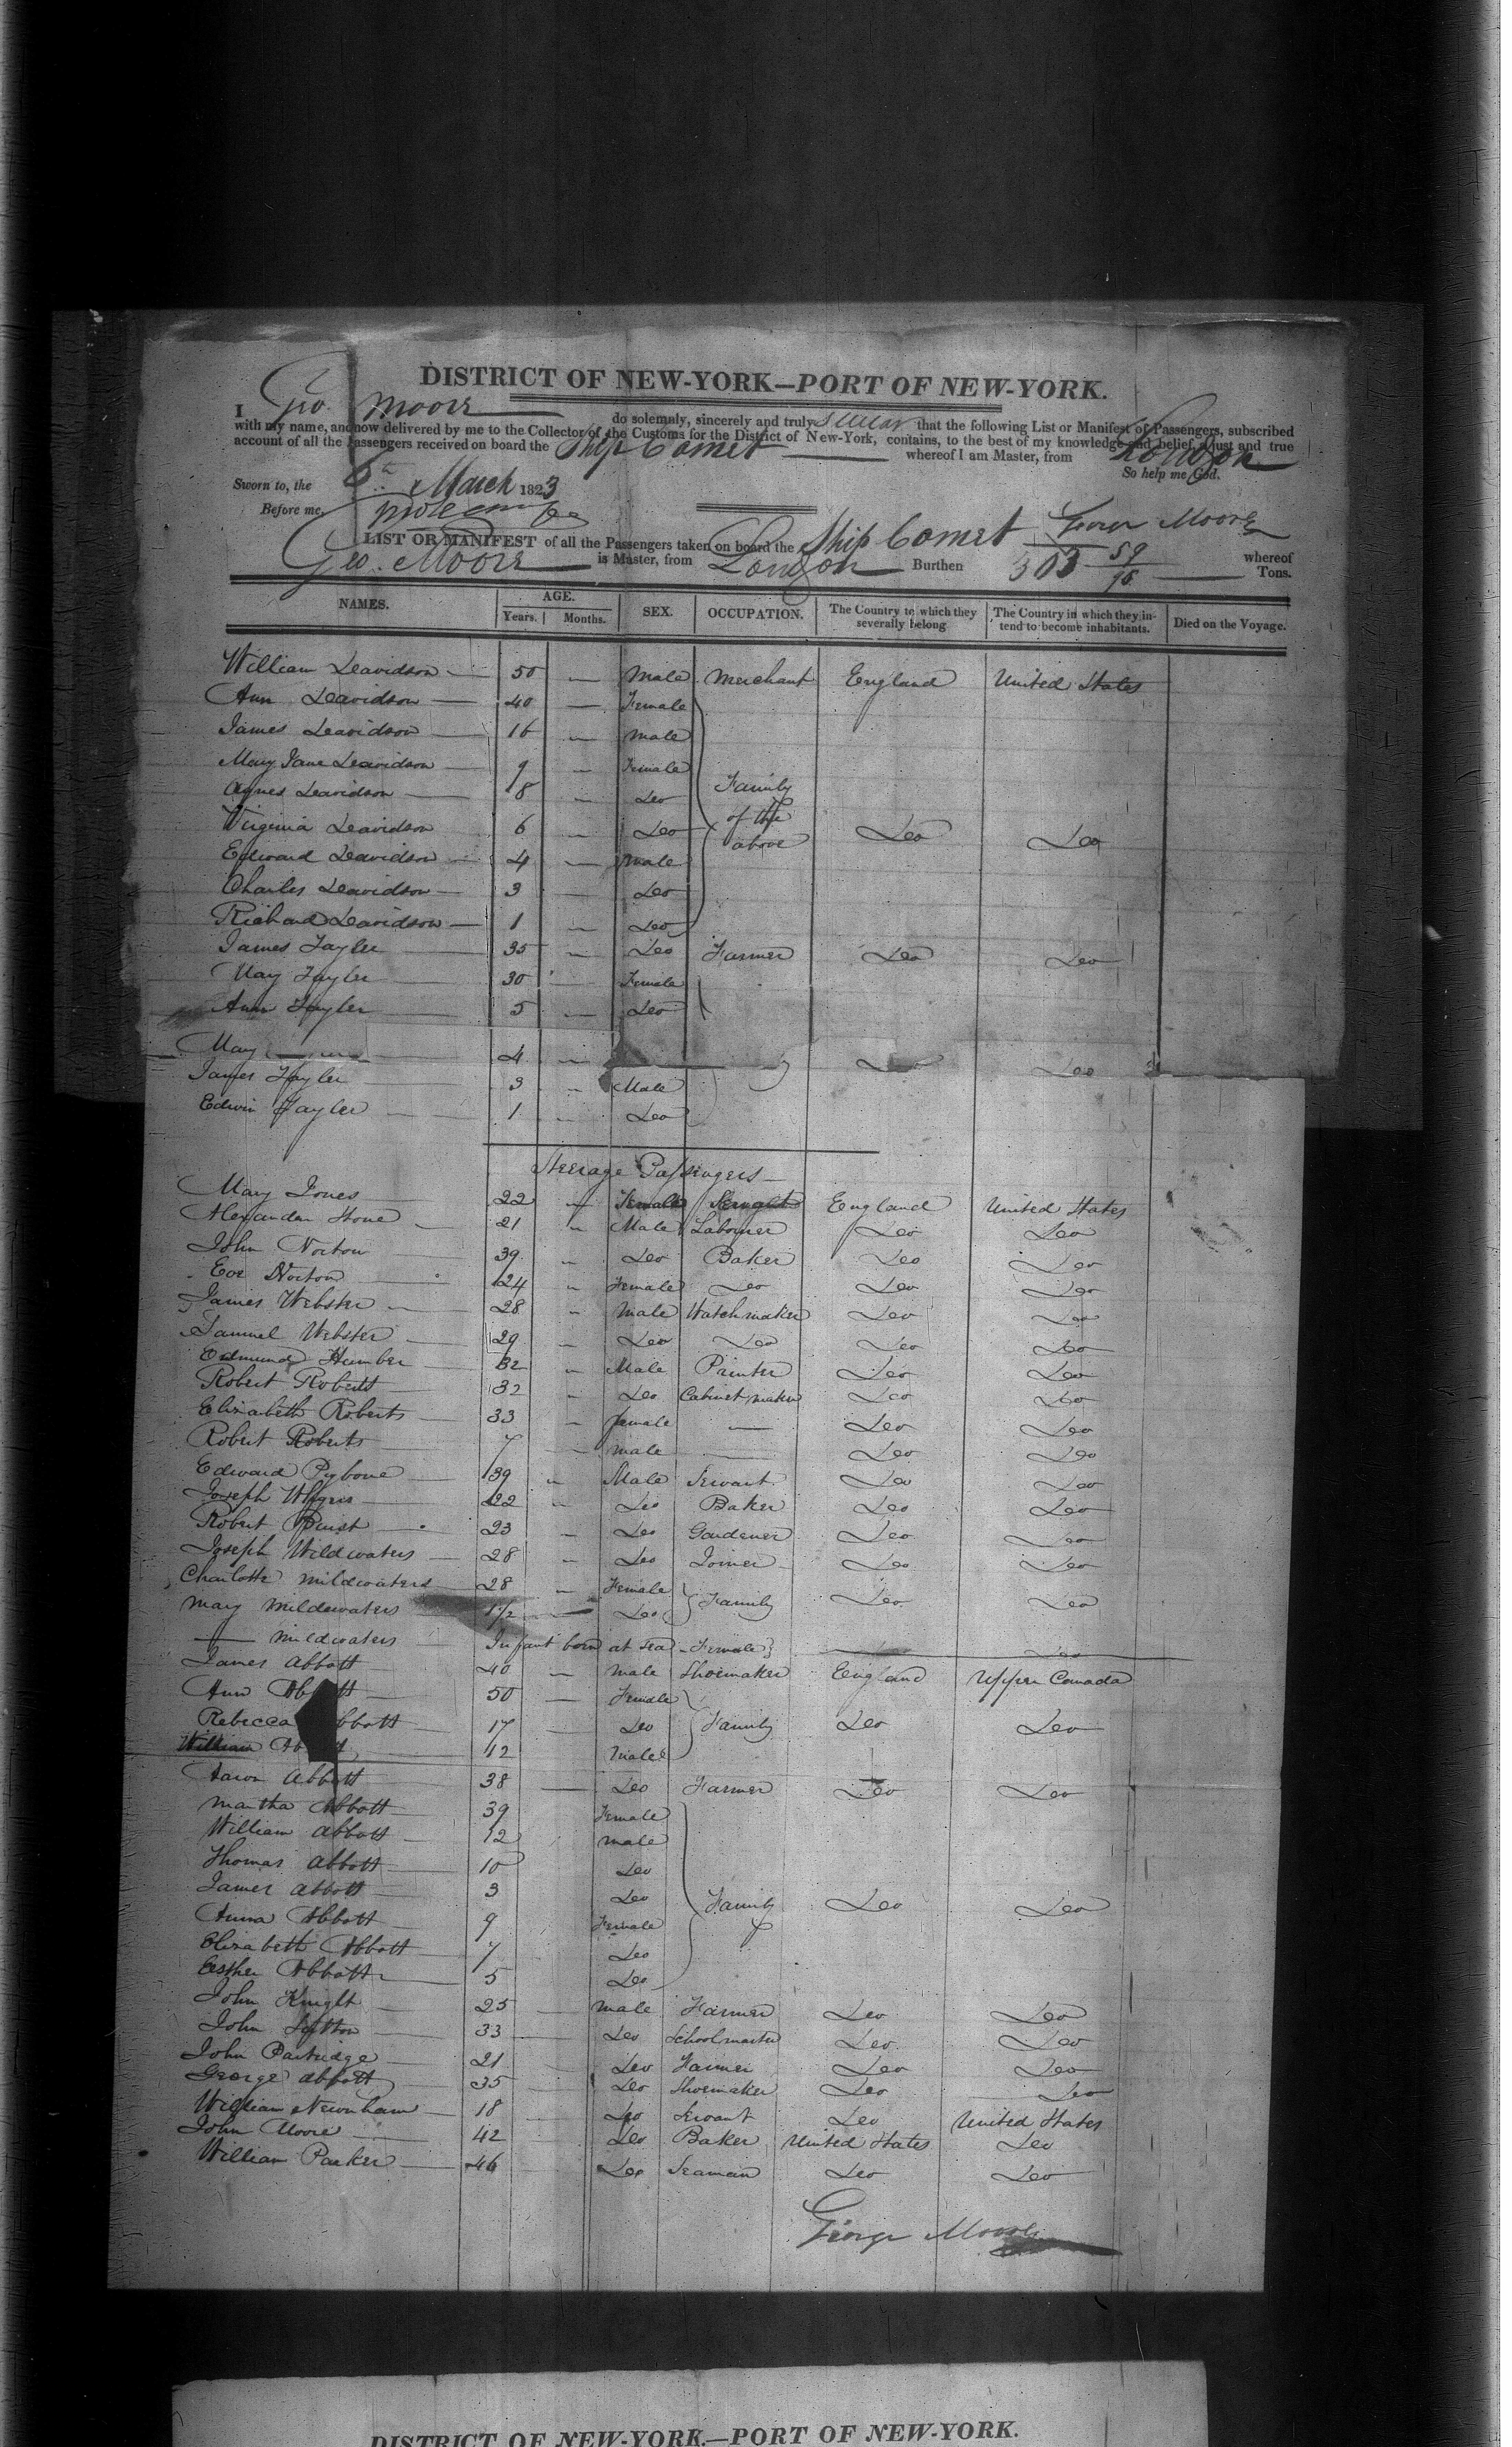 DISTRICT OF NEW-YORK—PORT OF NEW-YORK.
I Geo. Moore do solemnly, sincerely and truly swear that the following List or Manifest of Passengers, subscribed
with my name, and now delivered by me to the Collector of the Customs for the District of New-York, contains, to the best of my knowledge and belief, a just and true
account of all the Passengers received on board the Ship Comet whereof I am Master, from London
So help me God.
Sworn to, the 6th March 1823
Before me,
George Moore
LIST OR MANIFEST of all the Passengers taken on board the Ship Comet whereof
Geo. Moore is Master, from London Burthen 303 59/95 Tons.
NAMES. AGE. Years. Months. SEX. OCCUPATION. The Country to which they severally belong The Country in which they intend to become inhabitants. Died on the Voyage.
William Davidson 50 — Male Merchant England United States
Ann Davidson 40 — Female
James Davidson 16 — Male
Mary Jane Davidson 9 — Female
Agnes Davidson 8 — Do Family
Virginia Davidson 6 — Do of the Do Do
Edward Davidson 4 — Male above
Charles Davidson 3 — Do
Richard Davidson 1 — Do
James Tayler 35 — Do Farmer Do Do
Mary Tayler 30 — Female
Ann Tayler 5 — Do
Mary 4 — Do
James Tayler 3 " Male
Edwin Tayler 1 " Do
Steerage Passengers
Mary Jones 22 " Female Servant England United States
Alexander Stone 21 " Male Labourer Do Do
John Norton 39 " Do Baker Do Do
Eve Norton 24 " Female Do Do Do
James Webster 28 " Male Watchmaker Do Do
Samuel Webster 29 " Do Do Do Do
Edmund Humber 32 " Male Painter Do Do
Robert Roberts 32 " Do Cabinet maker Do Do
Elizabeth Roberts 33 " female — Do Do
Robert Roberts 7 — male — Do Do
Edward Pybone 39 " Male Servant Do Do
Joseph 22 " Do Baker Do Do
Robert 23 — Do Gardener Do Do
Joseph Mildwaters 28 — Do Joiner Do Do
Charlotte Mildwaters 28 — Female Family Do Do
Mary Mildewaters 1 1/2 — Do
— Mildwaters Infant born at sea - Female Do
James Abbott 40 — Male Shoemaker England Upper Canada
Ann Abbott 50 — Female
Rebecca Abbott 17 Do Family Do Do
William 12 Male
Aaron Abbott 38 — Do Farmer Do Do
Martha Abbott 39 Female
William Abbott 12 male
Thomas Abbott 10 Do
James Abbott 3 Do Family Do Do
Anna Abbott 9 Female
Elizabeth Abbott 7 Do
Esther Abbott 5 Do
John Knight 25 — Male Farmer Do Do
John 33 Do Schoolmaster Do Do
John Partridge 21 Do Farmer Do Do
George Abbott 35 Do Shoemaker Do Do
William Newnham 18 Do Servant Do United States
John Moore 42 Do Baker United States Do
William Parker 46 Do Seaman Do Do
George Moore
DISTRICT OF NEW-YORK.—PORT OF NEW-YORK.